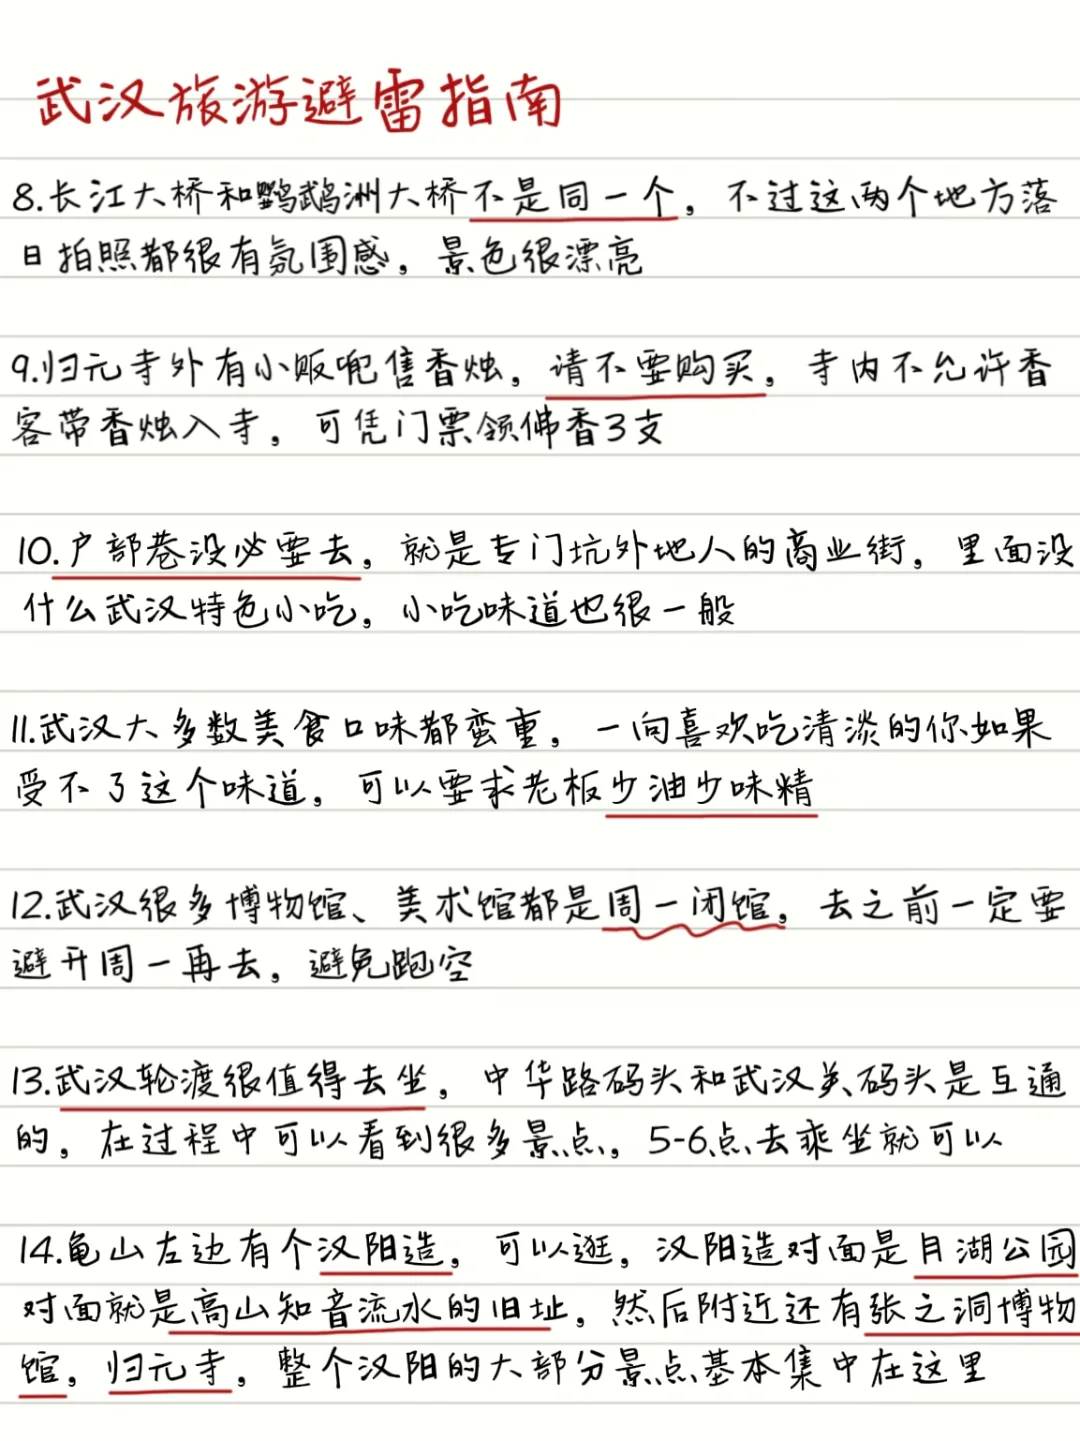 武汉旅游避雷指南
8.长江大桥和鹦鹉洲大桥不是同一个，不过这两个地方落
日拍照都很有氛围感，景色很漂亮
9.归元寺外有小贩兜售香烛，请不要购买，寺内不允许香
客带香烛入寺，可凭门票领佛香3支
10.户部巷没必要去，就是专门坑外地人的商业街，里面没
什么武汉特色小吃，小吃味道也很一般
11.武汉大多数美食口味都蛮重，一向喜欢吃清淡的你如果
受不了这个味道，可以要求老板少油少味精
12.武汉很多博物馆、美术馆都是周一闭馆，去之前一定要
避开周一再去，避免跑空
13.武汉轮渡很值得去坐，中华路码头和武汉关码头是互通
的，在过程中可以看到很多景点，5-6点去乘坐就可以
14.龟山左边有个汉阳造，可以逛，汉阳造对面是月湖公园
对面就是高山知音流水的旧址，然后附近还有张之洞博物
馆，归元寺，整个汉阳的大部分景点基本集中在这里